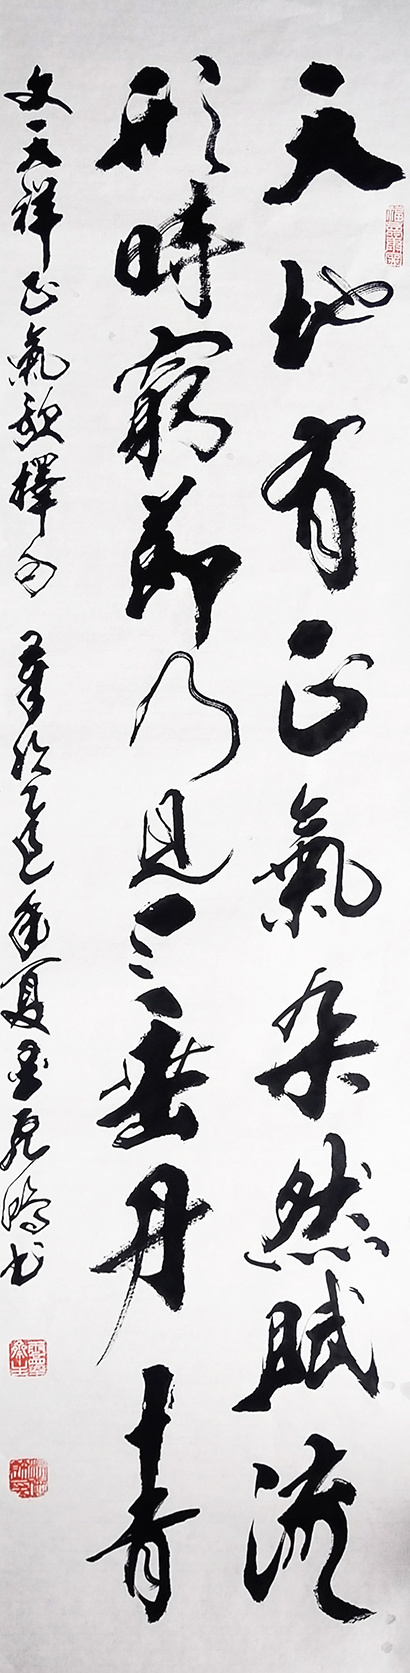 天地有正氣杂然賦流
形時窮節乃見一一垂丹青
文天祥正氣歌擇句 乙巳年夏